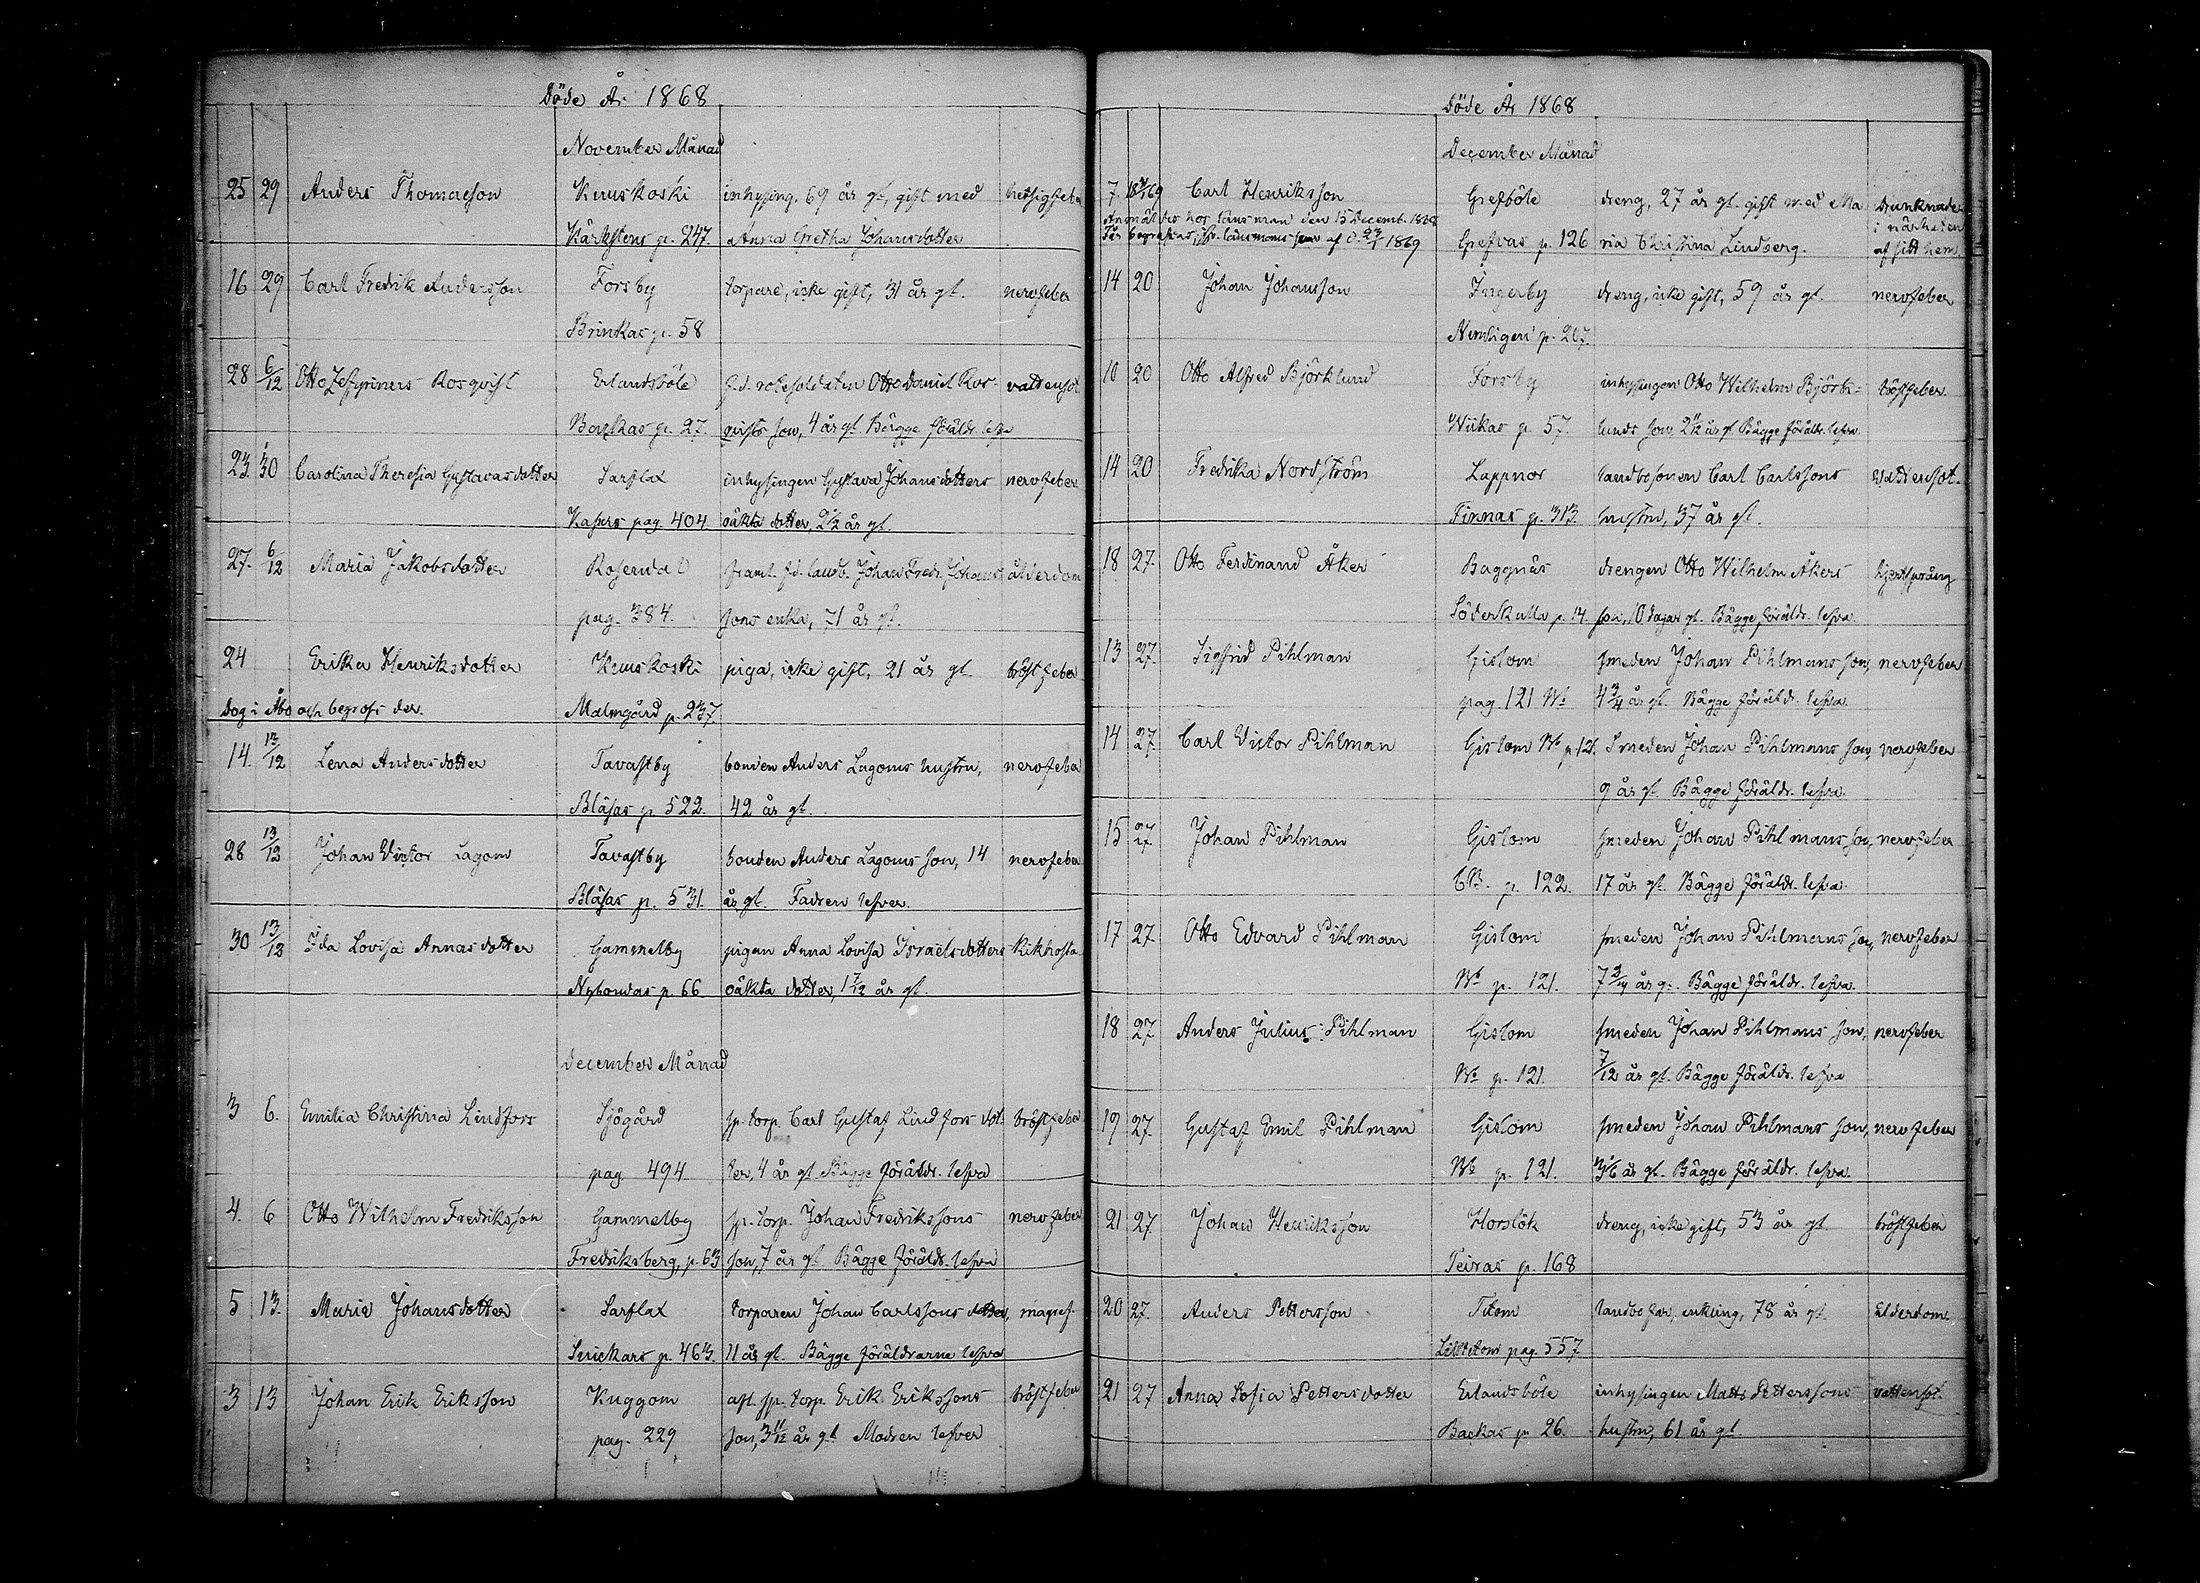 Döde År 1868
November Månad
25 29 Anders Thomasson Kuuskoski inhysing, 69 år gl, gift med hetsigfeber
Kärkstens p. 247. Anna Gretha Johansdotter
16 29 Carl Fredrik Andersson Forsby torpare, icke gift, 31 år gl. nervfeber
Brinkas p. 58
28 6/12 Otto Zefyrinus Rosqvist Erlandsböle f.d. rotesoldaten Otto Daniel Ros- vattensot
Backas p. 27. qvists son, 4 år gl. Bägge föräldr. lefva
23 30 Carolina Theresia Gustavasdotter Sarflax inhysingen Gustava Johansdotters nervfeber
Kasurs pag. 404 oäkta dotter, 2 1/2 år gl.
27. 6/12 Maria Jakobsdotter Rosendal framl. f.d. landb. Johan Fredr. Johans- ålderdom
pag. 384. sons enka, 71 år gl.
24 Erika Henriksdotter Kuuskoski piga, icke gift, 21 år gl bröstfeber
Dog i Åbo och begrofs der. Malmgård p. 237
14. 13/12 Lena Andersdotter Tavastby bonden Anders Lagoms hustru, nervfeber
Bläsas p. 522. 42 år gl.
28 13/12 Johan Victor Lagom Tavastby bonden Anders Lagoms son, 14 nervfeber
Bläsas p. 531. år gl. Fadren lefver.
30 13/12 Ida Lovisa Annasdotter Gammelby pigan Anna Lovisa Israelsdotters kikhosta
Nybondas p. 66 oäkta dotter, 1 7/12 år gl.
December Månad
3 6. Emilia Christina Lindfors Sjögård sp. torp. Carl Gustaf Lindfors dot- bröstfeber
pag. 494 ter, 4 år gl. Bägge föräldr. lefva
4. 6 Otto Wilhelm Fredriksson Gammelby sp. torp. Johan Fredrikssons nervfeber
Fredriksberg, p. 63 son, 7 år gl. Bägge föräldr. lefva
5 13. Maria Johansdotter Sarflax torparen Johan Carlssons dotter, magref
Snickars p. 463. 11 år gl. Bägge föräldrarne lefva
3 13 Johan Erik Eriksson Kuggom afl. sp. torp. Erik Erikssons bröstfeber
pag. 229 son, 3 11/12 år gl Modren lefver
Döde År 1868
December Månad
7 Carl Henriksson Grefböle dreng, 27 år gl. gift med Ma- Drunknade
Anmäldes hos länsman den 15 Decemb. 1868 i närheten
Får begrafvas, länsmans af d. 1869 Grefvas p. 126 ria Christina Lindberg. af sitt hem.
14 20 Johan Johansson Ingerby dreng, icke gift, 59 år gl. nervfeber
p. 207.
10 20 Otto Alfred Björklund Forsby inhysingen Otto Wilhelm Björk= bröstfeber.
Wiikas p. 57. lunds son, år gl Bägge föräldr. lefva.
14 20 Fredrika Nordström Lappnor landbosonen Carl Carlssons Vattensot.
Finnas p. 313. hustru, 37 år gl.
18 27. Otto Ferdinand Åker Baggnäs drengen Otto Wilhelm Åkers hjertsprång
Söderkulla p. 14. son, 10 dagar gl. Bägge föräldr. lefva
13 27. Sigfrid Pihlman Gislom smeden Johan Pihlmans son, nervfeber
pag. 121 Wb 4 3/4 år gl. Bägge föräldr. lefva.
14 27. Carl Victor Pihlman Gislom Wb p. 121. Smeden Johan Pihlmans son, nervfeber
9 år gl. Bägge föräldr. lefva.
15 27 Johan Pihlman Gislom smeden Johan Pihlmans son, nervfeber
CB. p. 122. 17 år gl. Bägge föräldr. lefva.
17 27 Otto Edvard Pihlman Gislom smeden Johan Pihlmans son, nervfeber
Wb p. 121. 7 år g. Bägge föräldr. lefva.
18 27 Anders Julius Pihlman Gislom smeden Johan Pihlmans son, nervfeber
Wb p. 121. 7/12 år gl. Bägge föräldr. lefva
19 27 Gustaf Emil Pihlman Gislom smeden Johan Pihlmans son, nervfeber
Wb p. 121. 3 1/6 år gl. Bägge föräldr. lefva.
21 27. Johan Henriksson Horslök dreng, icke gift, 53 år gl. bröstfeber
Teiras p. 168
20 27. Anders Pettersson Titom landbofar, enkling, 78 år gl. Elderdom.
Lilltitom pag. 557
21 27 Anna Sofia Pettersdotter Erlandsböle inhysingen Matts Petterssons vattensot.
Backas p. 26. hustru, 61 år gl.